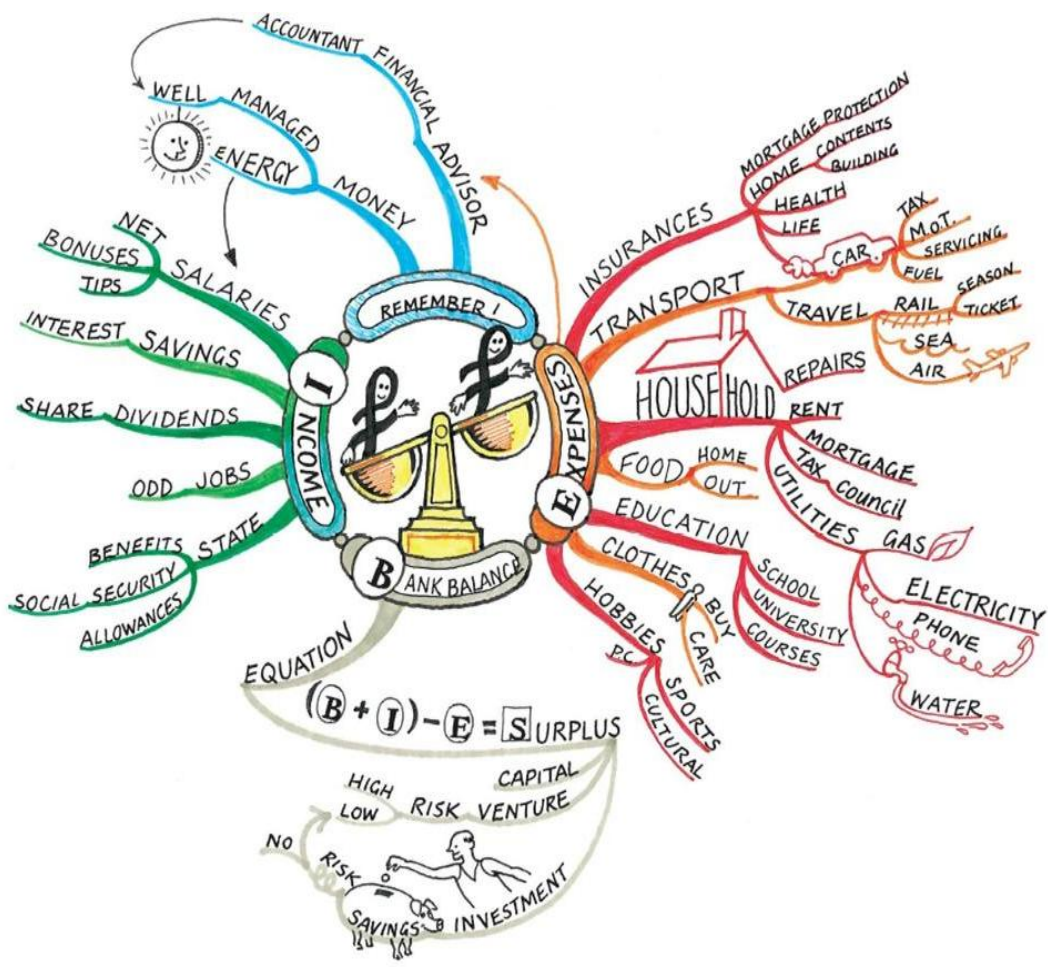 ACCOUNTANT
FINANCIAL
ADVISOR
WELL
MANAGED
ENERGY
MONEY
REMEMBER !
NET
BONUSES
TIPS
SALARIES
INTEREST
SAVINGS
SHARE
DIVIDENDS
ODD
JOBS
STATE
BENEFITS
SOCIAL SECURITY
ALLOWANCES
INCOME
EXPENSES
BANK BALANCE
INSURANCES
MORTGAGE PROTECTION
HOME
CONTENTS
BUILDING
HEALTH
LIFE
TRANSPORT
CAR
TAX
M.O.T.
SERVICING
FUEL
TRAVEL
RAIL
SEASON
TICKET
SEA
AIR
HOUSEHOLD
REPAIRS
RENT
MORTGAGE
TAX
Council
UTILITIES
GAS
ELECTRICITY
PHONE
WATER
FOOD
HOME
OUT
EDUCATION
SCHOOL
UNIVERSITY
COURSES
CLOTHES
BUY
CARE
HOBBIES
P.C
SPORTS
CULTURAL
EQUATION
(B + I) - E = SURPLUS
CAPITAL
VENTURE
RISK
HIGH
LOW
INVESTMENT
SAVINGS
RISK
NO